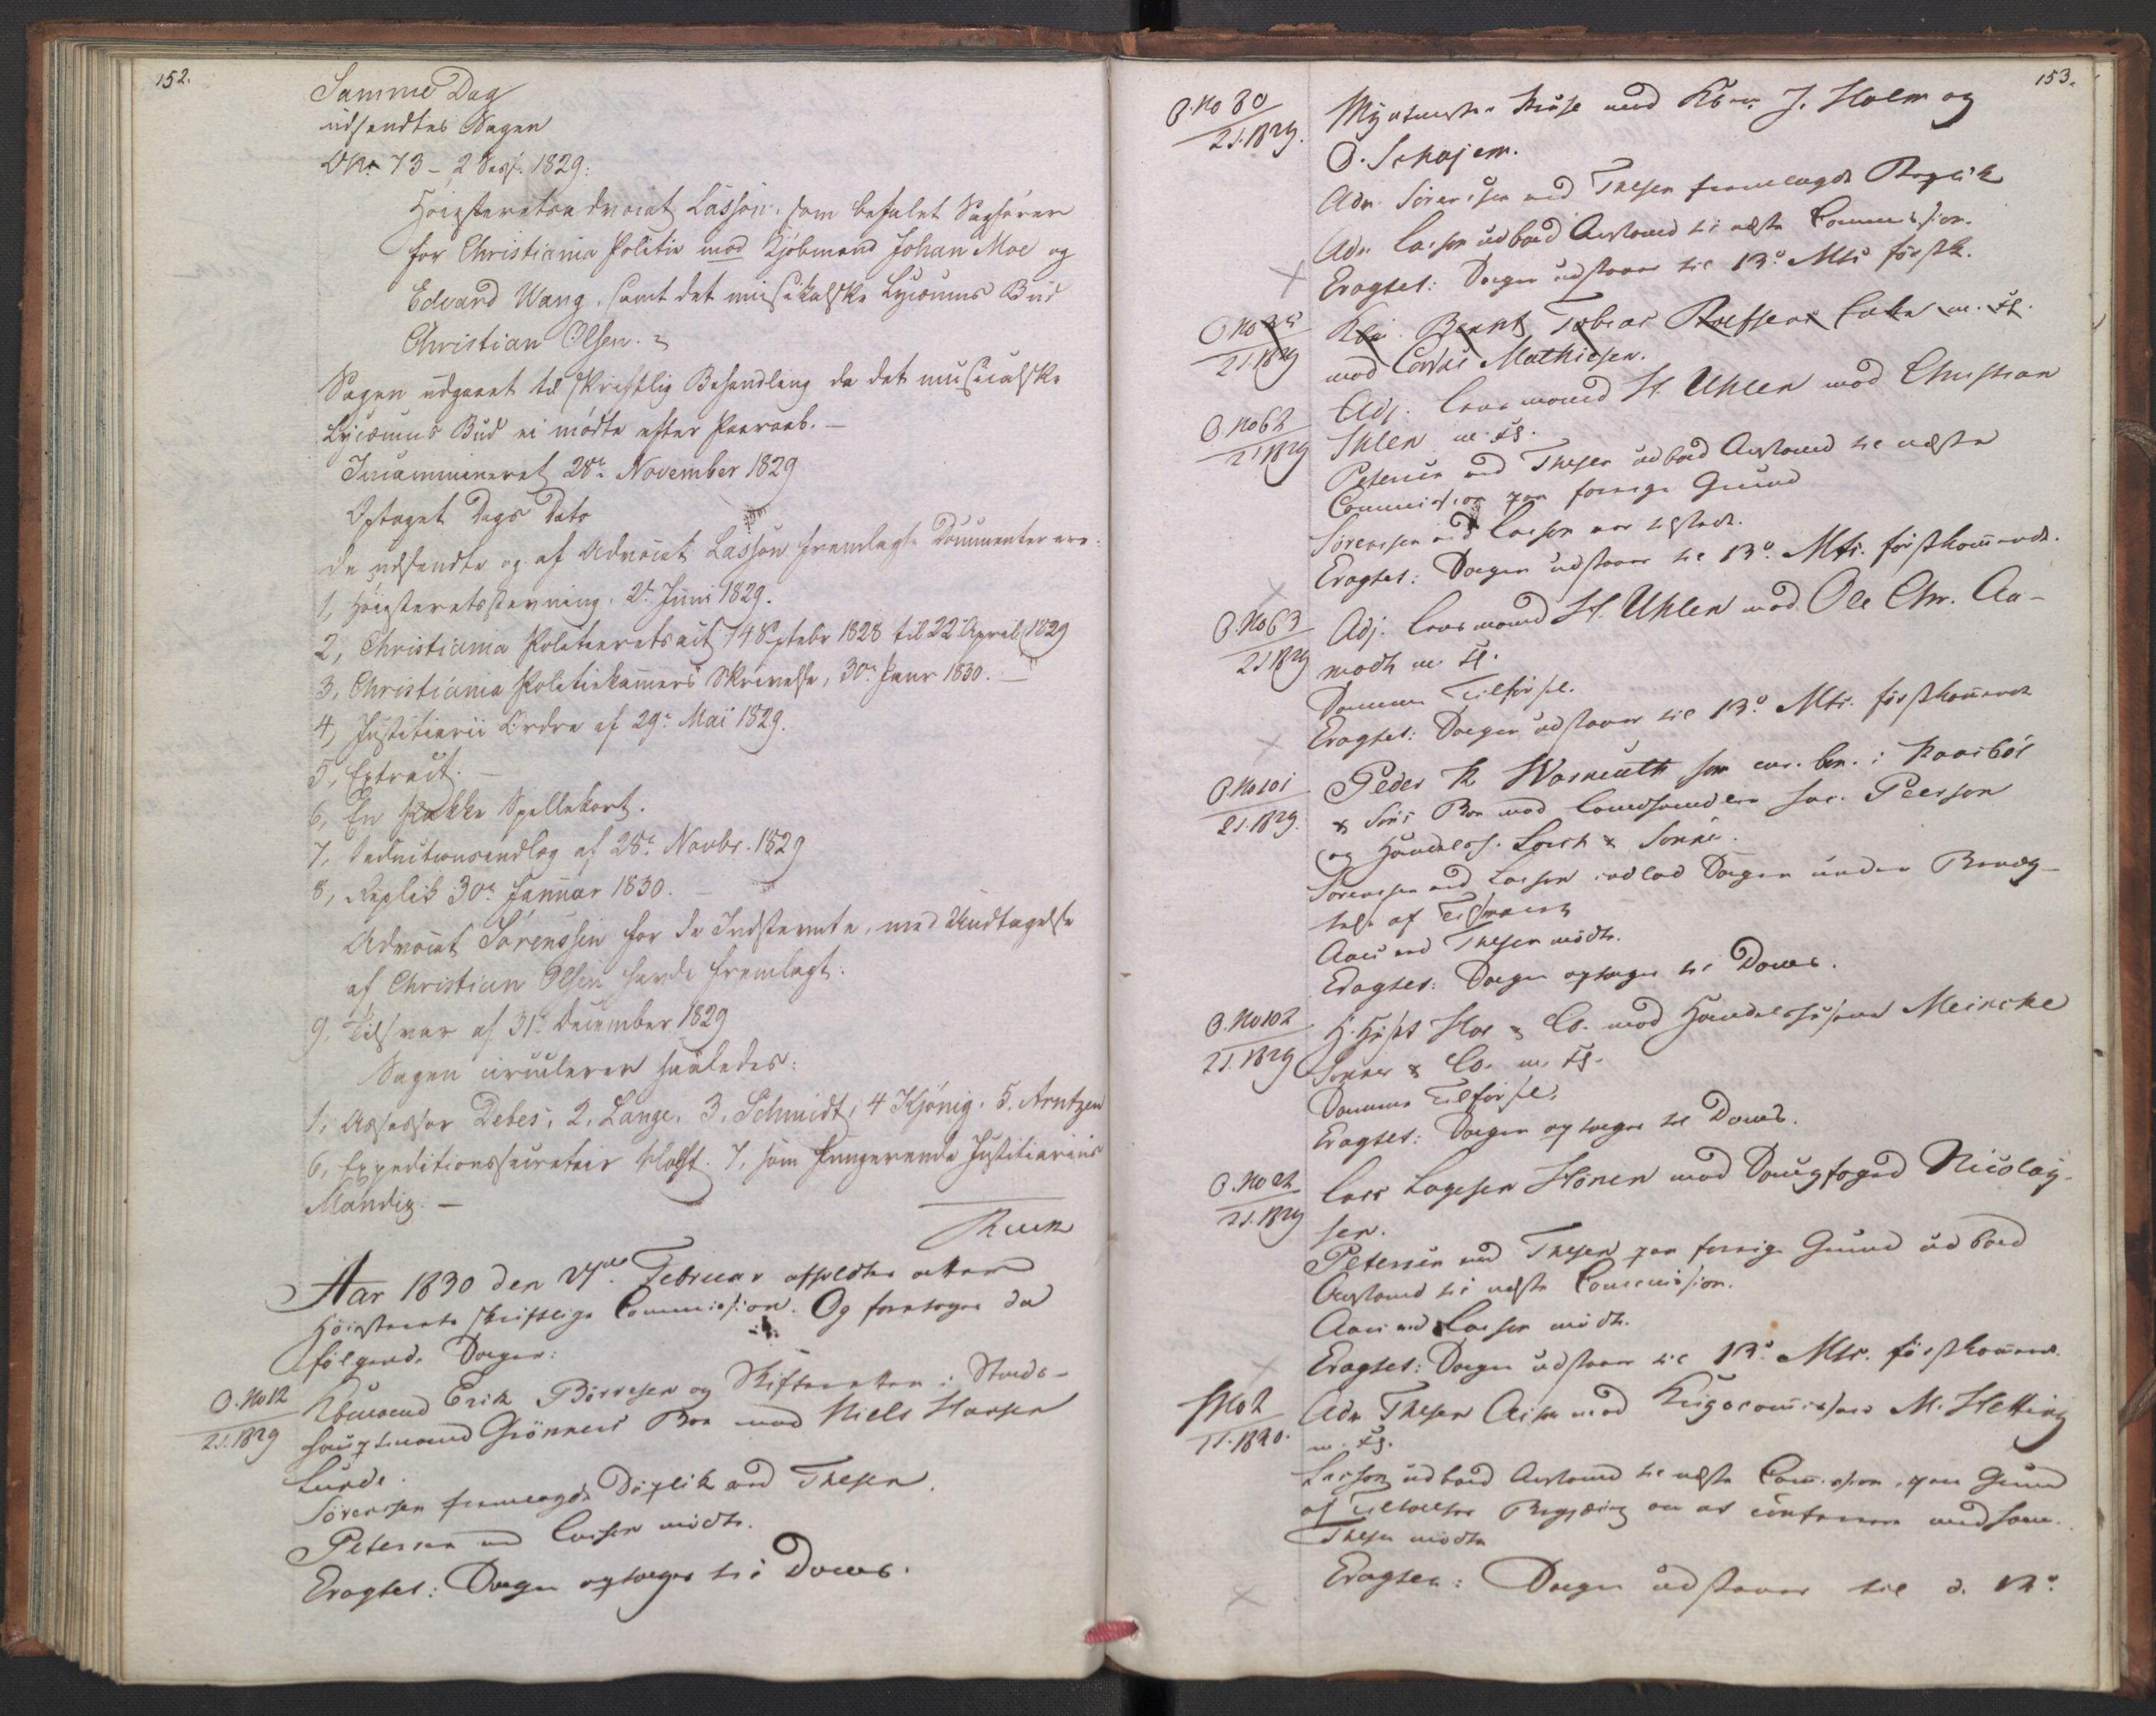 152.
Samme Dag
udsendtes Sagen
O No 73 - 2 Sess. 1829:
Høiesteretsadvocat Lasson, som befalet Sagfører
for Christiania Politie mod Kjøbmand Johan Moe og
Edvard Wang, samt det musikalske Lycæums Bud
Christian Olsen.
Sagen udgaaet til skriftlig Behandling da det musicalske
Lycæums Bud ei mødte efter Paaraab. -
Incammineret 28de November 1829
Optaget Dags Dato
De udsendte og af Advocat Lasson fremlagte Documenter ere:
1, Høiesteretsstevning. 2de Juni 1829.
2, Christiania Politieretsact 14 Septebr 1828 til 22 April 1829
3, Christiania Politiekamers Skrivelse, 30te Janr 1830. -
4, Justitiarii Ordre af 29de Mai 1829.
5, Extract. -
6, En Pakke Spillekort.
7, Deductionsindlæg af 28de Novbr. 1829
8, Replik 30te Januar 1830. -
Advocat Sørenssen for de Indstevnte, med Undtagelse
af Christian Olsen havde fremlagt:
9, Tilsvar af 31te December 1829
Sagen circulerer saaledes:
1, Assessor Debes, 2, Lange, 3, Schmidt, 4 Kjønig. 5. Arntzen
6, Expeditionssecretair Holst. 7, som fungerende Justitiarius
Mandix. -
Aar 1830 den 27de Februar afholdtes atter
Høiesterets skriftlige Commission. Og foretoges da
følgende Sager:
O. No 12
2 S. 1829
Kbmand Erik Børresen og Skifteretten i Stads-
hauptmand Grønners Boe mod Niels Hansen
Lunde.
Sørenssen fremlagde Duplik ved Thesen.
Petersen ved Lasson mødte.
Eragtet: Sagen optages til Doms.
153.
O. No 80
2 S. 1829.
Myntmester Kruse mod Kbm. J. Holm og
O. Schajem.
Adv. Sørenssen ved Thesen fremlagde Replik
Adv. Lasson udbad Anstand til næste Commission.
Eragtet: Sagen udstaaer til 13de Mts førstk.
2 S. 1829
Tobias
mod Mathiesen.
O. No 62
2 S 1829
Adj. Lensmand H. Uhlen mod Christian
Ihlen m. fl.
Petersen ved Thesen udbad Anstand til næste
Commission paa forrige Grund
Sørenssen ved Lasson var tilstede.
Eragtet: Sagen udstaaer til 13de Mts. førstkommende.
O. No 63
2 S 1829
Adj. Lensmand H. Uhlen mod Ole Chr. Aa-
modt m. fl.
Samme Tilførsel.
Eragtet: Sagen udstaaer til 13de Mts. førstkommende
O. No 101
2 S. 1829.
Peder K. Wasmuth som cur. bon. i
& Søns Boe mod Peerson
og Handelsh. &
Sørenssen ved Lasson indlod Sagen under Benæg-
telse af Tilsvaret
ved Thesen mødte.
Eragtet: Sagen optages til Doms.
O. No 102
2 S. 1829
& Co. mod Handelshuset Meincke
Sønner & Co. m. fl.
Samme Tilførsel.
Eragtet: Sagen optages til Doms.
O. No 22
2 S. 1829
Lars Larssen mod Sougfoged Nicolay-
sen.
Petersen ved Thesen paa forrige Grund udbad
Anstand til næste Commission.
ved Lasson mødte.
Eragtet: Sagen udstaaer til 13de Mts. førstkommende.
No 2
Adv. Thesen mod Krigscommissair M. Hetting
m. fl.
Lasson udbad Anstand til næste Commission, paa Grund
af Begjæring om at conferere med ham.
Thesen mødte
Eragtet: Sagen udstaaer til d. 13de